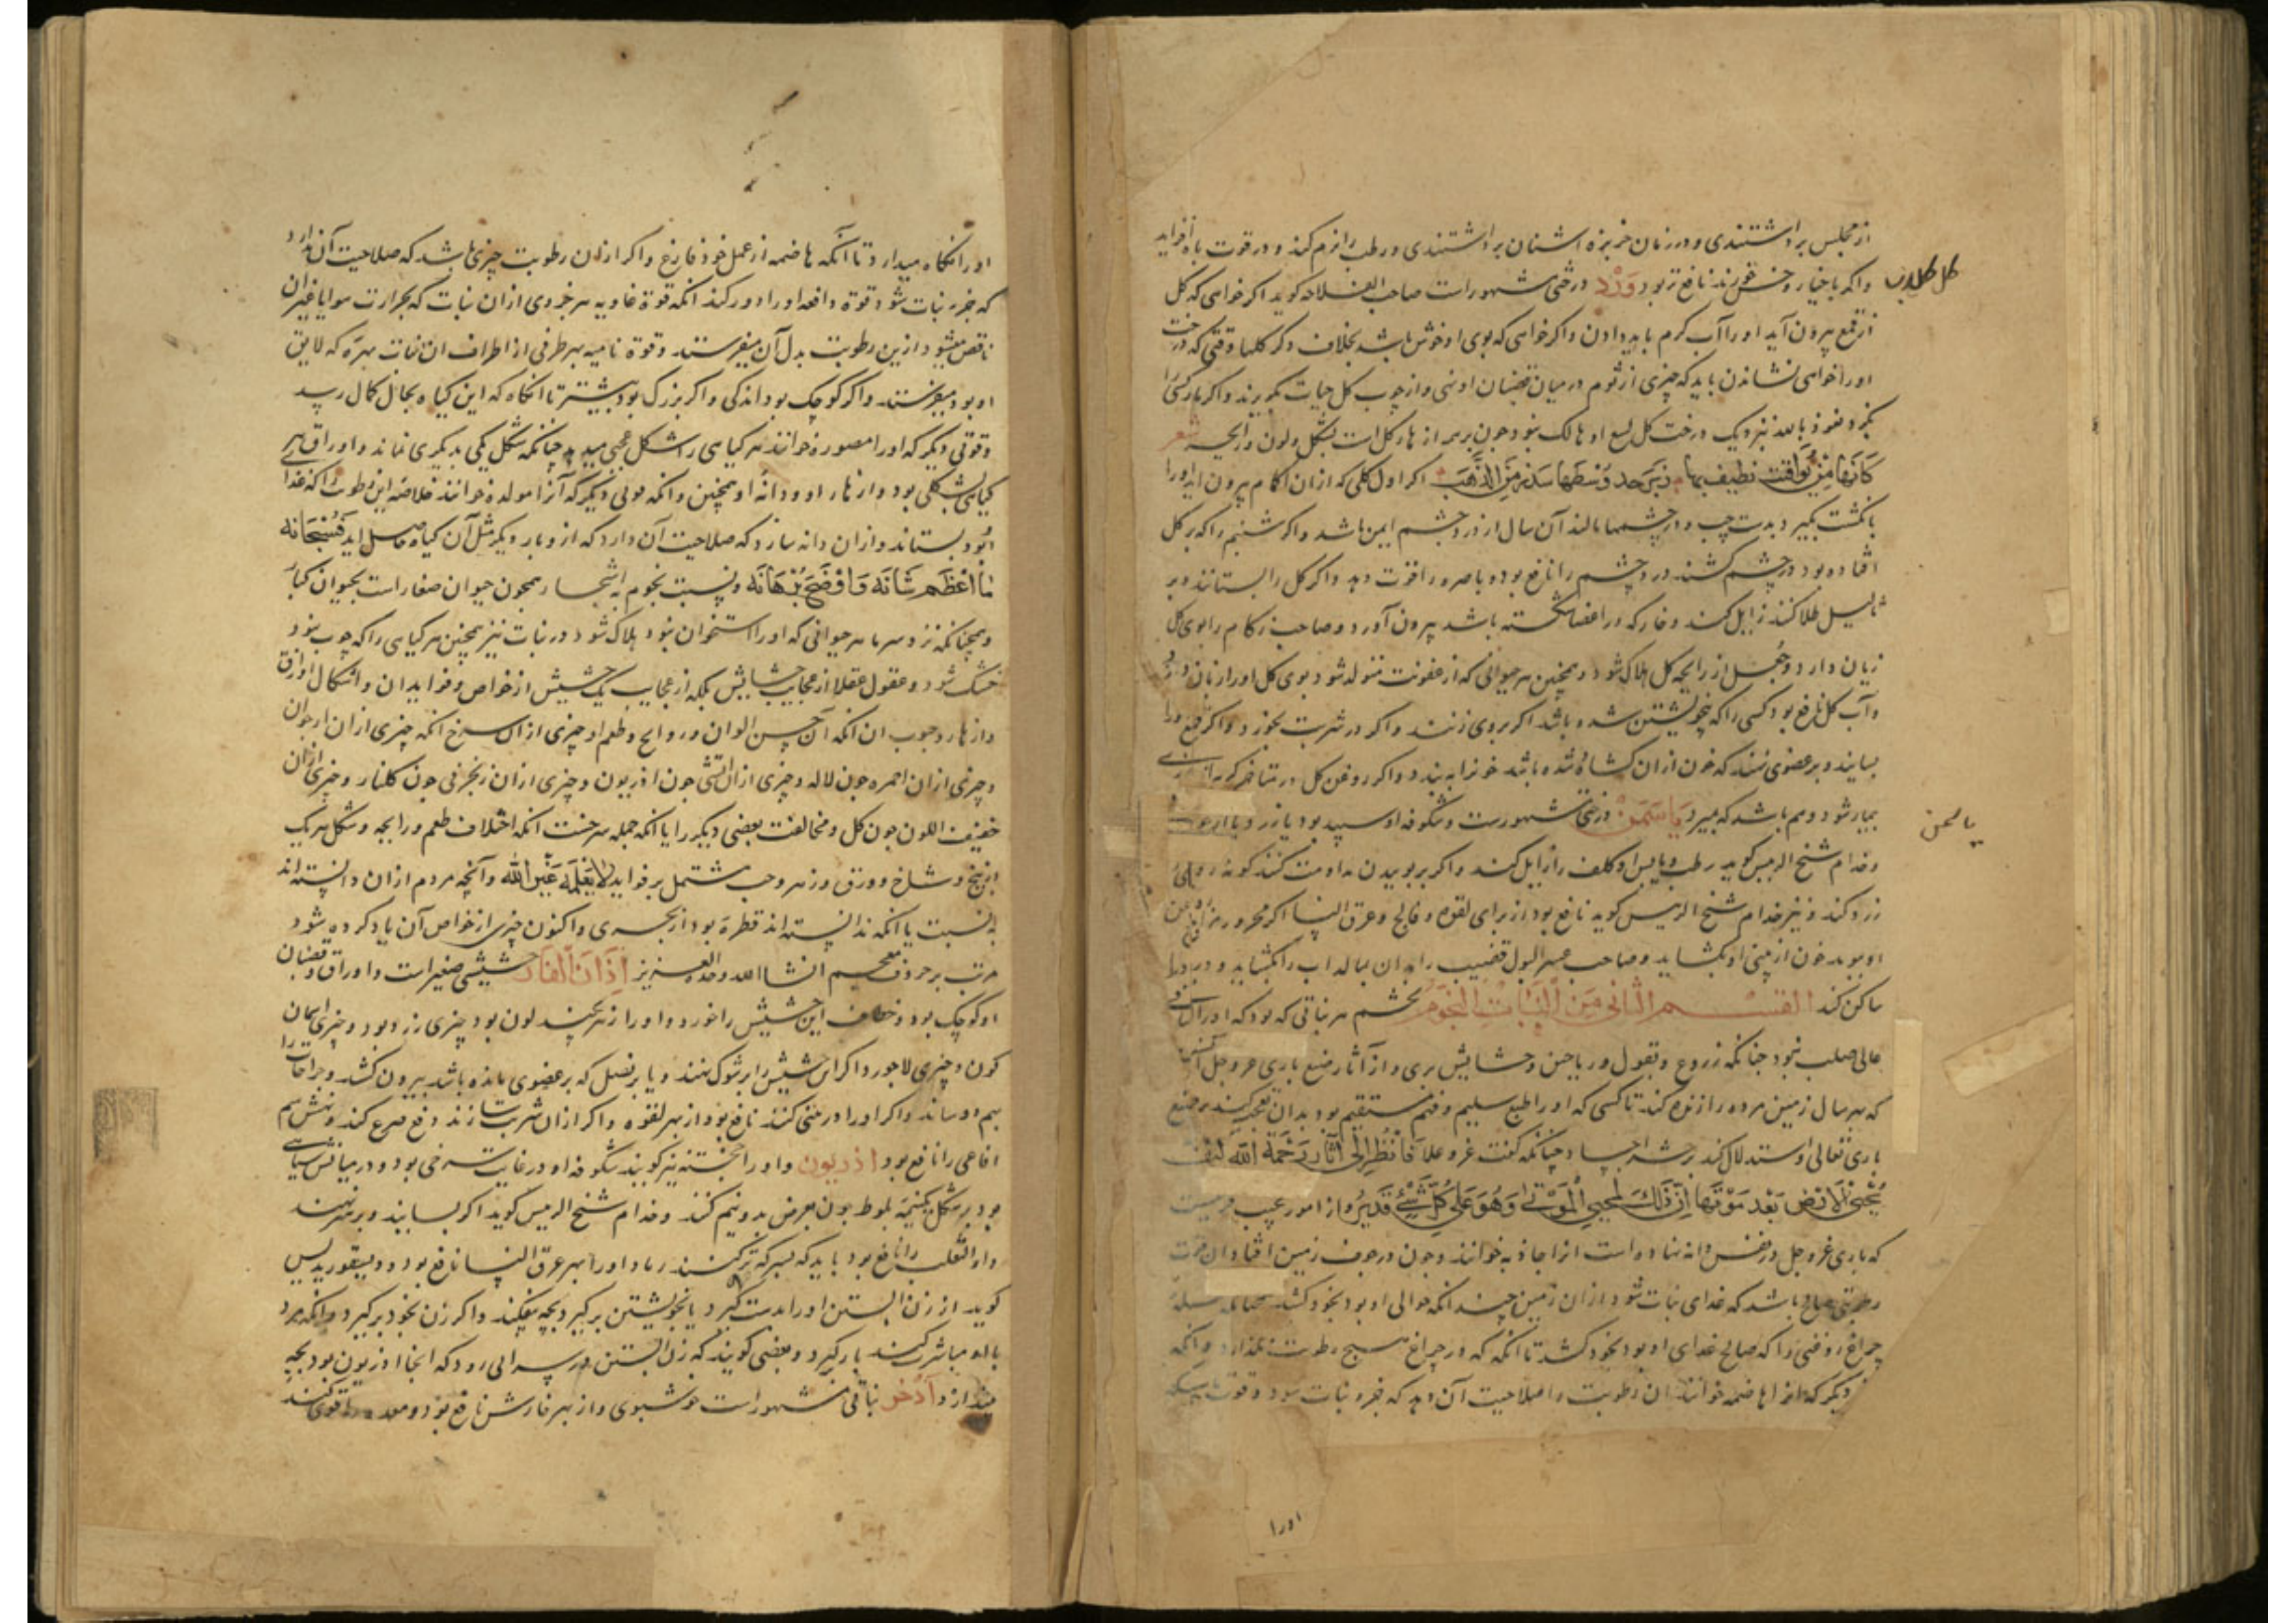 از مجلس برداشتندی و در زمان خربزه اشنان برداشتندی و رطب را نرم کند و در قوت باه افزاید
واکر با خیار خورند نافع تر بود وَرْد درختی مشهورست صاحب الفلاحه کوید اکر خواهی که کل
کل کلاب
از قمع بیرون آید او را آب کرم باید دادن واکر خواهی که بوی او خوش باشد بخلاف دکر کلها وقتی که درخت
او را خواهی نشاندن باید که چیزی از ثوم در میان قضبان او نهی و از چوب کل حیات بکریزند واکر مار کسی را
بکزد نعوذ بالله نزدیک درخت کل لسع او هالک نبود چون بهترین ازهار کل است بشکل و لون و رایحه شعر
کانها من یواقت نطیف بها زبرجد وسطها شذر من الذهب اکر اول کلی که از ان اکمام بیرون اید او را
بانکشت بکیرد بدست چپ و در چشمها مالند آن سال از درد چشم ایمن باشد واکر شبنم را که بر کل
افتاده بود در چشم کشند درد چشم را نافع بود و باصره را قوت دهد واکر کل را بستانند و بر
ثالیل طلا کنند زایل کند و خار که در اعضا شکسته باشد بیرون آورد و صاحب زکام را بوی کل
زیان دارد و جعل از رایحه کل هلاک شود و همچنین هر حیوانی که از عفونت متولد شود بوی کل او را زیان دارد
و آب کل نافع بود کسی را که بیخویشتن شده باشد اکر بر وی زنند واکر در شربت بخورد واکر قمع ورد
بسایند و بر عضوی نهند که خون از ان کشاده شده باشد خونرا ببندد واکر روغن کل در
بیمار شود و هم باشد که بمیرد یاسَمَن درختی مشهورست و شکوفه او سپید بود یا زرد یا ارغوانی
یاسمن
و قدام شیخ الرییس کوید رطب و یابس او کلف را زایل کند واکر بر بوییدن مداومت کنند کونه روی
زرد کند و نیز قدام شیخ الرییس کوید نافع بود از برای لقوه و فالج و عرق النسا اکر محرور مزاج
او بوید خون از بینی او بکشاید و صاحب عسر البول قضیب را بدان بمالد اب را بکشاید و درد را
ساکن کند القسم الثانی من النبات النجوم نجم هر نباتی که بود که او را ساقی
عالی صلب نبود چنانکه زروع و بقول و ریاحین و حشایش بری و از آثار صنع باری عز و جل
که هر سال زمین مرده را زنده کند تا کسی که او را طبع سلیم و فهم مستقیم بود بدان بصنع
باری تعالی و استدلال کند بر حشر اجساد چنانکه کفت عز و علا فانظر الی آثار رحمة الله کیف
یحیی الارض بعد موتها ان ذلک لمحیی الموتی وهو علی کل شیء قدیر و از امور عجیب
که باری عز و جل در نفس دانه نهاده است انرا جاذبه خوانند و چون در جوف زمین افتاد ان قوت
رطوبتی صالح باشد که غذای نبات شود از ان زمین چندانکه حوالی او بود بخود کشد
چراغ روغنی را که صالح غذای او بود بخود کشد تا انکه که در چراغ هیچ رطوبت نکذارد و انکه
دیکر که انرا هاضمه خوانند ان رطوبت را صلاحیت آن دهد که جزو نبات شود و قوت
او را
او را نکاه میدارد تا آنکه هاضمه از عمل خود فارغ واکر از ان رطوبت چیزی باشد که صلاحیت آن ندارد
که جزو نبات شود قوة دافعه او را دور کند انکه قوة غاذیه هر جزوی از ان نبات که بحرارت هوا یا غیر ان
ناقص میشود ازین رطوبت بدل آن میفرستد و قوة نامیه بهر طرفی از اطراف ان نبات بهره که لایق
او بود میفرستد واکر کوچک بود اندکی واکر بزرک بود بیشتر تا انکاه که این کیاه بحال کمال رسید
و قوتی دیکر که او را مصوره خوانند هر کیاهی را شکل عجب میدهد چنانکه شکل یکی بدیکری نماند و اوراق هر
کیاهی بشکلی بود و ازهار او و دانهٔ او همچنین و انکه قوتی دیکر که آنرا مولده خوانند خلاصه این رطوبت را که غذا
بود بستاند و از ان دانه سازد که صلاحیت آن دارد که ازو بار دیکر مثل آن کیاه حاصل اید فسبحانه
ما اعظم شانه و اوضح برهانه و نسبت نجوم به اشجار همچون حیوان صغارست بحیوان کبار
و همچنانکه نزد سرما هر حیوانی که او را استخوان نبود هلاک شود در نبات نیز همچنین هر کیاهی را که چوب نبود
خشک شود و عقول عقلا از عجایب حشایش بلکه از عجایب یک حشیش از خواص و فواید ان و اشکال اوراق
و ازهار و حبوب ان انکه آن حسن الوان و روایح و طعم او چیزی از ان سرخ انکه چیزی از ان ارجوان
و چیزی از ان احمر چون لاله و چیزی از ان آتشی چون اذریون و چیزی از ان زنجرفی چون کلنار و چیزی از ان
خفیف اللون چون کل و مخالفت بعضی دیکر را با انکه جمله سرخست انکه اختلاف طعم و رایحه و شکل هر یک
از بیخ و شاخ و ورق و زهر و حب مشتمل بر فواید لا یعلمه غیر الله و آنچه مردم از ان دانسته اند
به نسبت با انکه ندانسته اند قطره بود از بحری و اکنون چیزی از خواص آن یاد کرده شود
مرتب بر حروف معجم انشا الله وحده العزیز اذان الفار حشیشی صغیرست و اوراق و قضبان
او کوچک بود و خطاف این حشیش را خورد و او را زهر چند لون بود چیزی زرد بود و چیزی اسمان
کون و چیزی لاجورد واکر این حشیش را بر شوک نهند و یا بر نصل که بر عضوی مانده باشد بیرون کشد و جراحات را
بهم اورساند واکر او را در بینی کنند نافع بود از بهر لقوه واکر از ان شربت سازند دفع صرع کند و نهش سم
افاعی را نافع بود اذریون و او را خجسته نیز کویند شکوفه او در غایت سرخی بود و در میانش سیاهی
بود بر شکل نیمه بلوط چون بعرض بدو نیم کنند و قدام شیخ الرییس کوید اکر بسایند و بر سر نهند
داء الثعلب را نافع بود باید که بسرکه تر کنند رماد او را بهر عرق النسا نافع بود و دیسقوریدیس
کوید از زن ابستن او را بدست کیرد یا بخویشتن برکیرد بچه بیفکند واکر زن بخود برکیرد و انکه مرد
با او مباشرت کند بار کیرد و بعضی کویند که زن ابستن در سرائی رود که انجا اذریون بود بچه
بیندازد اذخر نباتی مشهورست خوشبوی و از بهر خارش نافع بود و معده را قوی کند